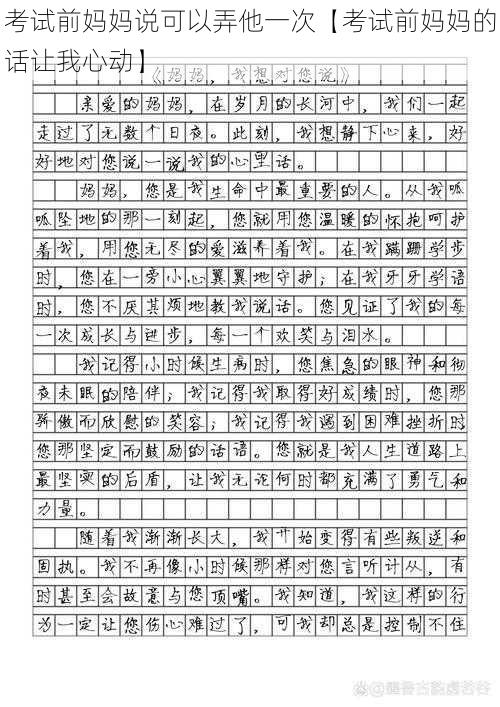 考试前妈妈说可以弄他一次【考试前妈妈的
话让我心动】
《妈妈，我想对您说》
亲爱的妈妈，在岁月的长河中，我们一起
走过了无数个日夜。此刻，我想静下心来，好
好地对您说一说我的心里话。
妈妈，您是我生命中最重要的人。从我呱
呱坠地的那一刻起，您就用您温暖的怀抱呵护
着我，用您无尽的爱滋养着我。在我蹒跚学步
时，您在一旁小心翼翼地守护；在我牙牙学语
时，您不厌其烦地教我说话。您见证了我的每
一次成长与进步，每一个欢笑与泪水。
我记得小时候生病时，您焦急的眼神和彻
夜未眠的陪伴；我记得我取得好成绩时，您那
骄傲而欣慰的笑容；我记得我遇到困难挫折时
您那坚定而鼓励的话语。您就是我人生道路上
最坚实的后盾，让我无论何时都充满了勇气和
力量。
随着我渐渐长大，我开始变得有些叛逆和
固执。我不再像小时候那样对您言听计从，有
时甚至会故意与您顶嘴。我知道，我这样的行
为一定让您伤心难过了，可我却总是控制不住